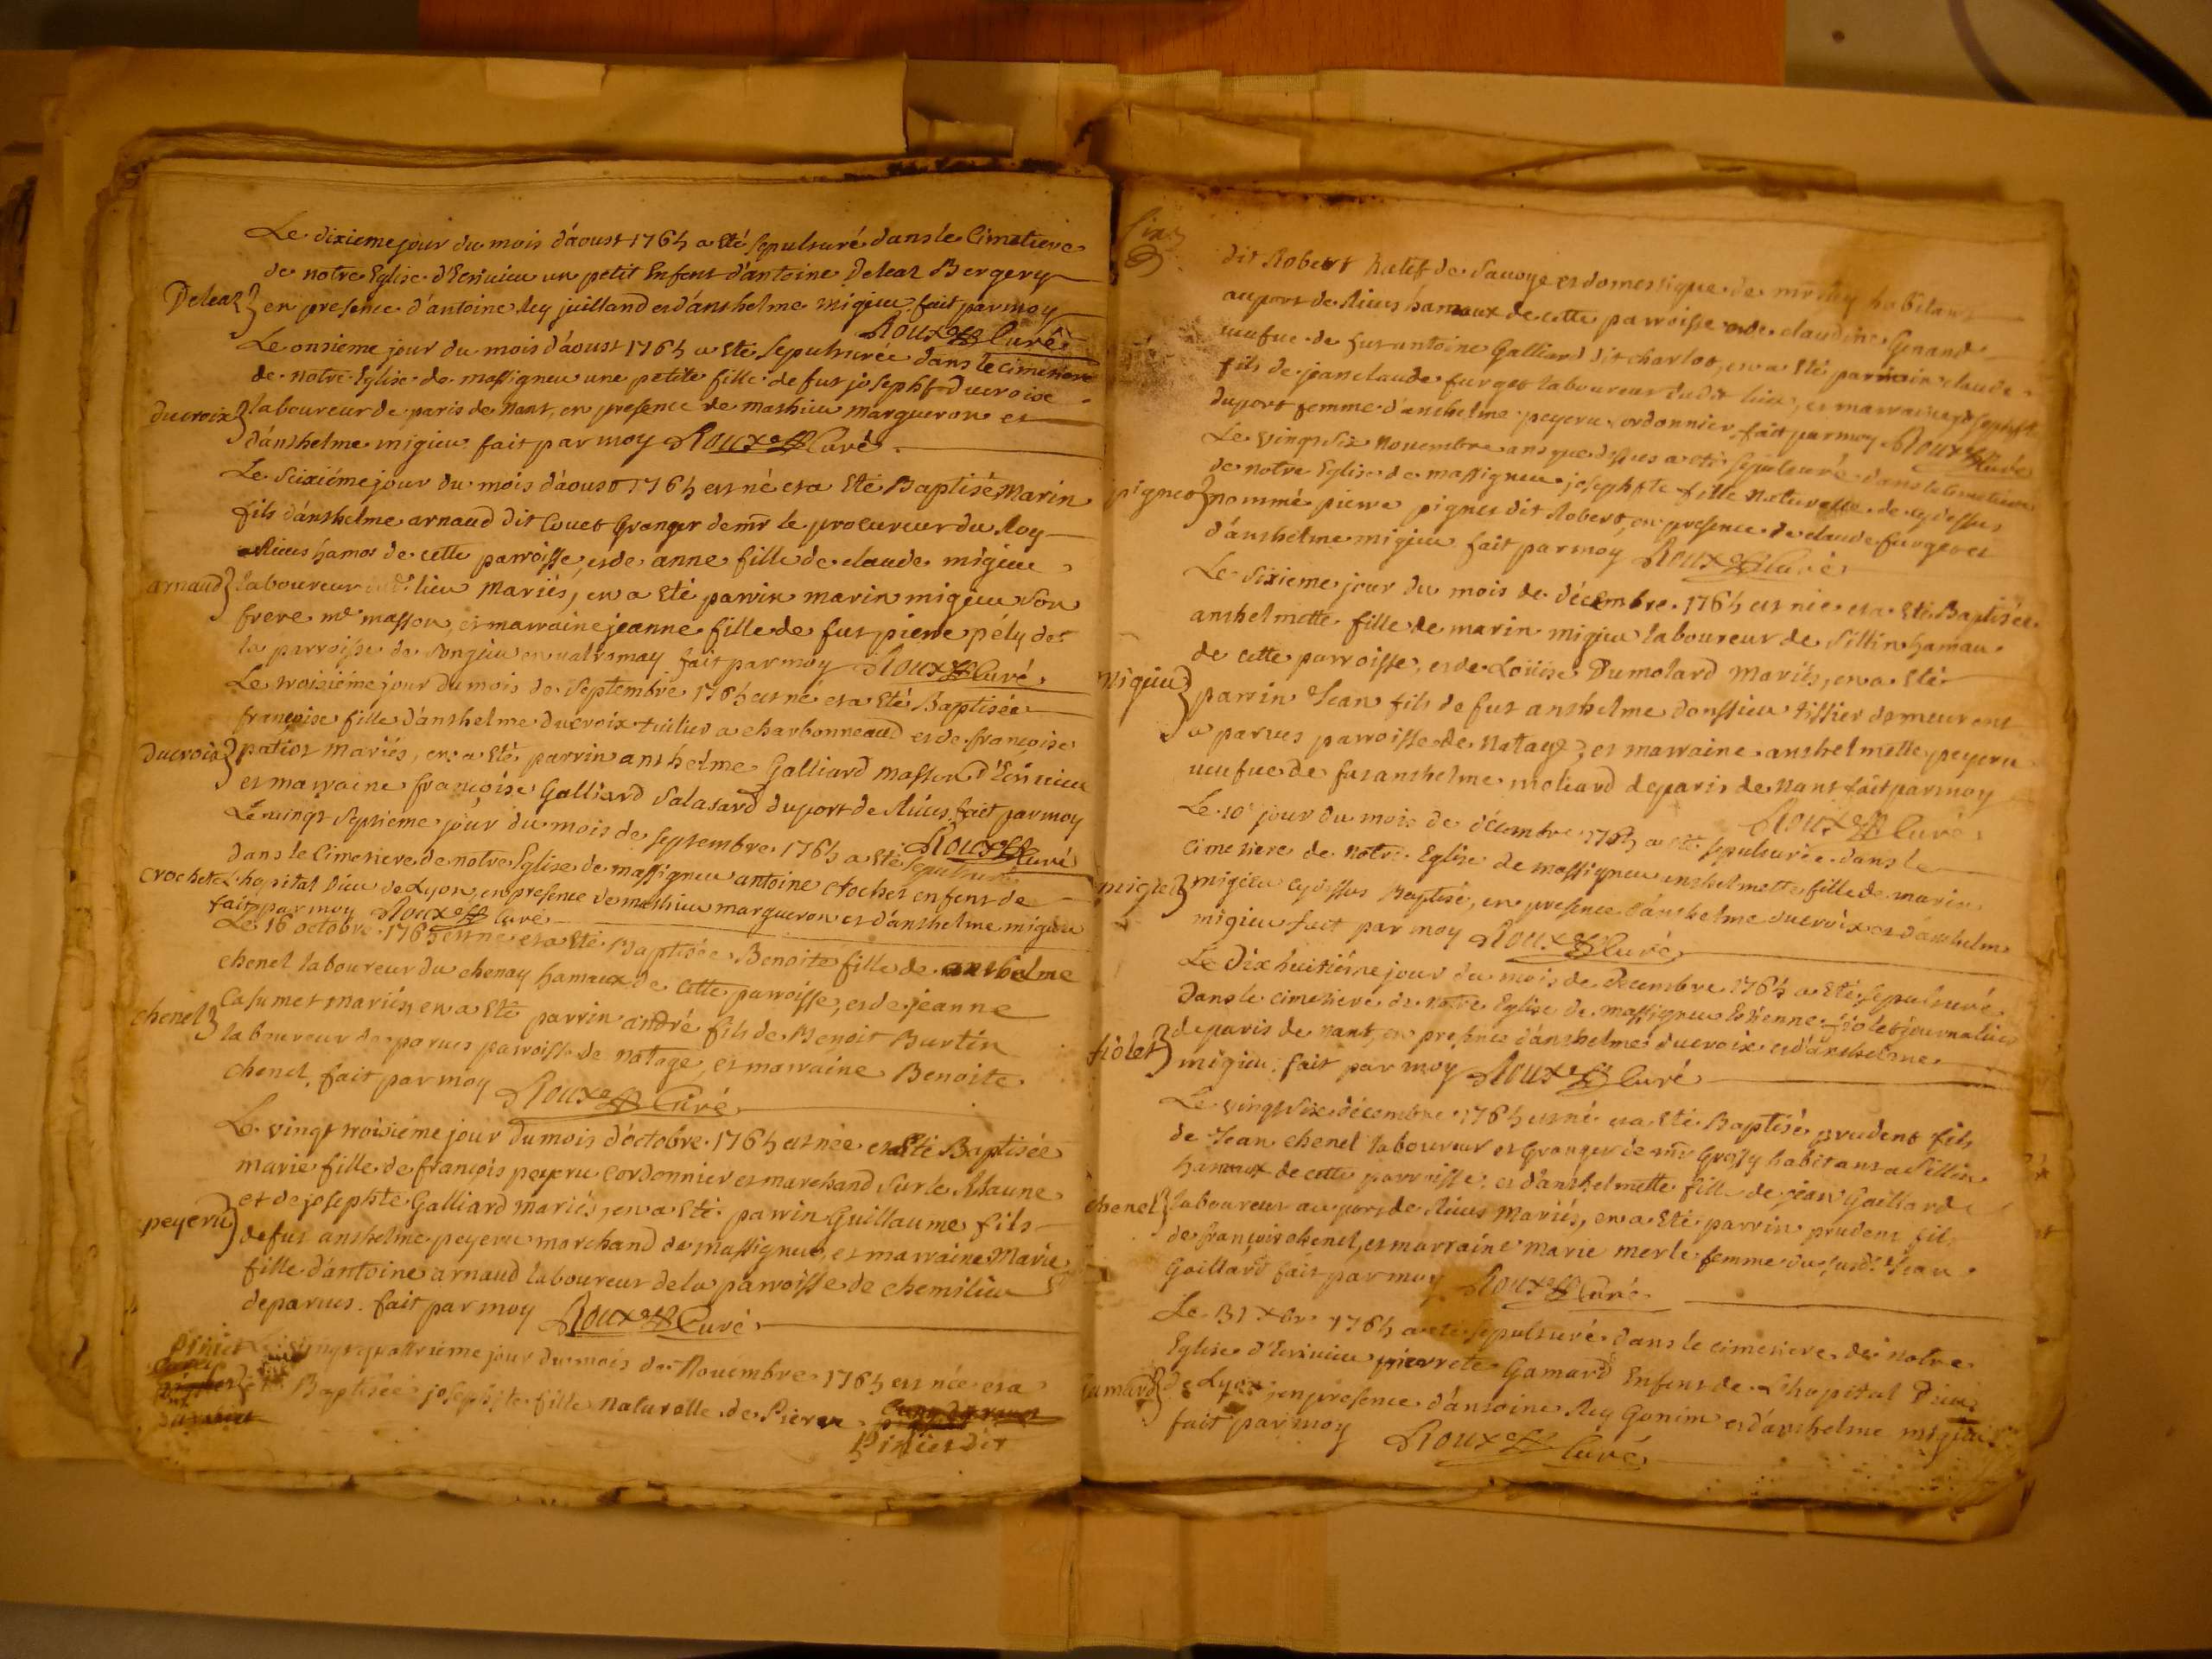 Le dixieme jour du mois d'áoust 1765 a Eté sepulturé dans le Cimetiere
de notre Eglise d'Ecrivieu un petit Enfent d'antoine Deleaz Bergery
Deleaz } en presence d'antoine Rey juilland et d'ánthelme migieu. fait par moy
Roux Curé
Le onsieme jour du mois d'áoust 1765 a Eté sepulturée dans le cimetiere
de notre Eglise de massigneu une petite fille de fut josepht ducroise
ducroix } laboureur de paris de nant, en presence de mathieu margueron et
d'ánthelme migieu fait par moy Roux Curé
Le seixiéme jour du mois d'áoust 1765 est né et a Eté Baptisé Marin
fils d'ánthelme arnaud dit Couet Granger de mr le procureur du Roy
a Rives hamos de cette parroisse, et de anne fille de claude migieu
arnaud } laboureur dudt lieu Mariés, en a Eté parrin marin migieu son
frere me masson, et marraine jeanne fille de fut pierre pély de
la parroisse de songieu en valromay fait par moy Roux Curé
Le troisiéme jour du mois de Septembre 1765 est né et a Eté Baptisée
françoise fille d'anthelme ducroix tuilier a charbonneaud et de françoise
ducroix } patiot mariés, en a Eté parrin anthelme Galliard masson d'Ecrivieu
et marraine françoise Galliard Salasard du port de Rives. fait par moy
Roux Curé
Le vingt septieme jour du mois de septembre 1765 a Eté sepulturé
dans le Cimetiere de notre Eglise de massigneu antoine Crochet enfent de
crochet L'hopital Dieu de Lyon, en presence de mathieu margueron et d'ánthelme migieu
fait par moy Roux Curé
Le 16 octobre 1765 est né et a Eté Baptisée Benoite fille de anthelme
chenel laboureur du chenay hamaux de cette parroisse, et de jeanne
chenel } Casumet mariés, en a Eté parrin andré fils de Benoit Burtin
laboureur de parves parroisse de natage, et marraine Benoite
chenel. fait par moy Roux Curé
Le vingt troisieme jour du mois d'octobre 1765 est née et a Eté Baptisée
marie fille de françois peyeru cordonnier et marchand sur le Rhaune
et de josephte Galliard mariés, en a Eté parrin Guillaume fils
peyeru } de fut anthelme peyeru marchand de massigneu, et marraine Marie
fille d'antoine arnaud laboureur de la parroisse de chemilieu
de parves. fait par moy Roux Curé
Le vingt quattrieme jour du mois de Novembre 1765 est née et a
eté Baptisée josephte fille Naturelle de Pierre
Piniet dit
dit Robert Natif de Savoye et domestique de mr Rey habitant
au port de Rives hamaux de cette parroisse et de claudine Genand
veufve de fut antoine Galliard dit charlot, en a Eté parrain claude
fils de jean claude furget laboureur dudit lieu, et marraine josephte
duport femme d'anthelme peyeru cordonnier, fait par moy Roux Curé
Le vingt six Novembre ans que dessus a eté sepulturé dans le cimetiere
de notre Eglise de massigneu josephte fille Naturelle de cy dessus
pignet } nommé pierre pignet dit Robert, en presence de claude furget et
d'ánthelme migieu fait par moy Roux Curé
Le sixieme jour du mois de décembre 1765 est née et a Eté Baptisée
anthelmette fille de marin migieu laboureur de sillin hamau
de cette parroisse, et de Loüise Dumolard Mariés, en a Eté
Migieu } parrin Jean fils de fut anthelme donssieu tissier demeurant
a parves parroisse de Natage, et marraine anthelmette peyeru
veufve de fut anthelme moliard de paris de nant fait par moy
Roux Curé
Le 10e jour du mois de décembre 1765 a eté sepulturée dans le
cimetiere de notre Eglise de massigneu anthelmette fille de marin
migieu } migieu cy dessus Baptisé, en presence d'ánthelme ducroix et d'ánthelme
migieu fait par moy Roux Curé
Le Dix huitiéme jour du mois de Decembre 1765 a Eté sepulturé
Dans le cimetiere de notre Eglise de massigneu Estienne fiolet journalier
fiolet } de paris de nant, en presence d'ánthelme ducroix et d'ánthelme
migieu. fait par moy Roux Curé
Le vingt six décembre 1765 est né et a Eté Baptisé prudent fils
de Jean chenel laboureur et Granger de mr Grossy habitant a sillin
hamaux de cette parroisse, et d'anthelmette fille de jean Galliard
chenel } laboureur au port de Rives Mariés, en a Eté parrin prudent fils
de françois chenel, et marraine marie merle femme du susdt Jean
Gaillard fait par moy Roux Curé
Le 31 Xbre 1765 a eté sepulturé dans le cimetiere de notre
Eglise d'Ecrivieu pierrete Gamard Enfent de L'hopital Dieu
Gamard } de Lyon, en presence d'ántoine Rey Gonim et d'ánthelme migieu
fait par moy Roux Curé